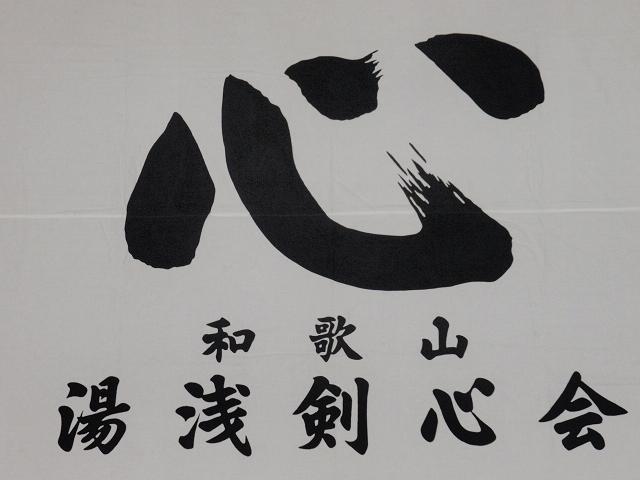 心
和歌山
湯浅剣心会